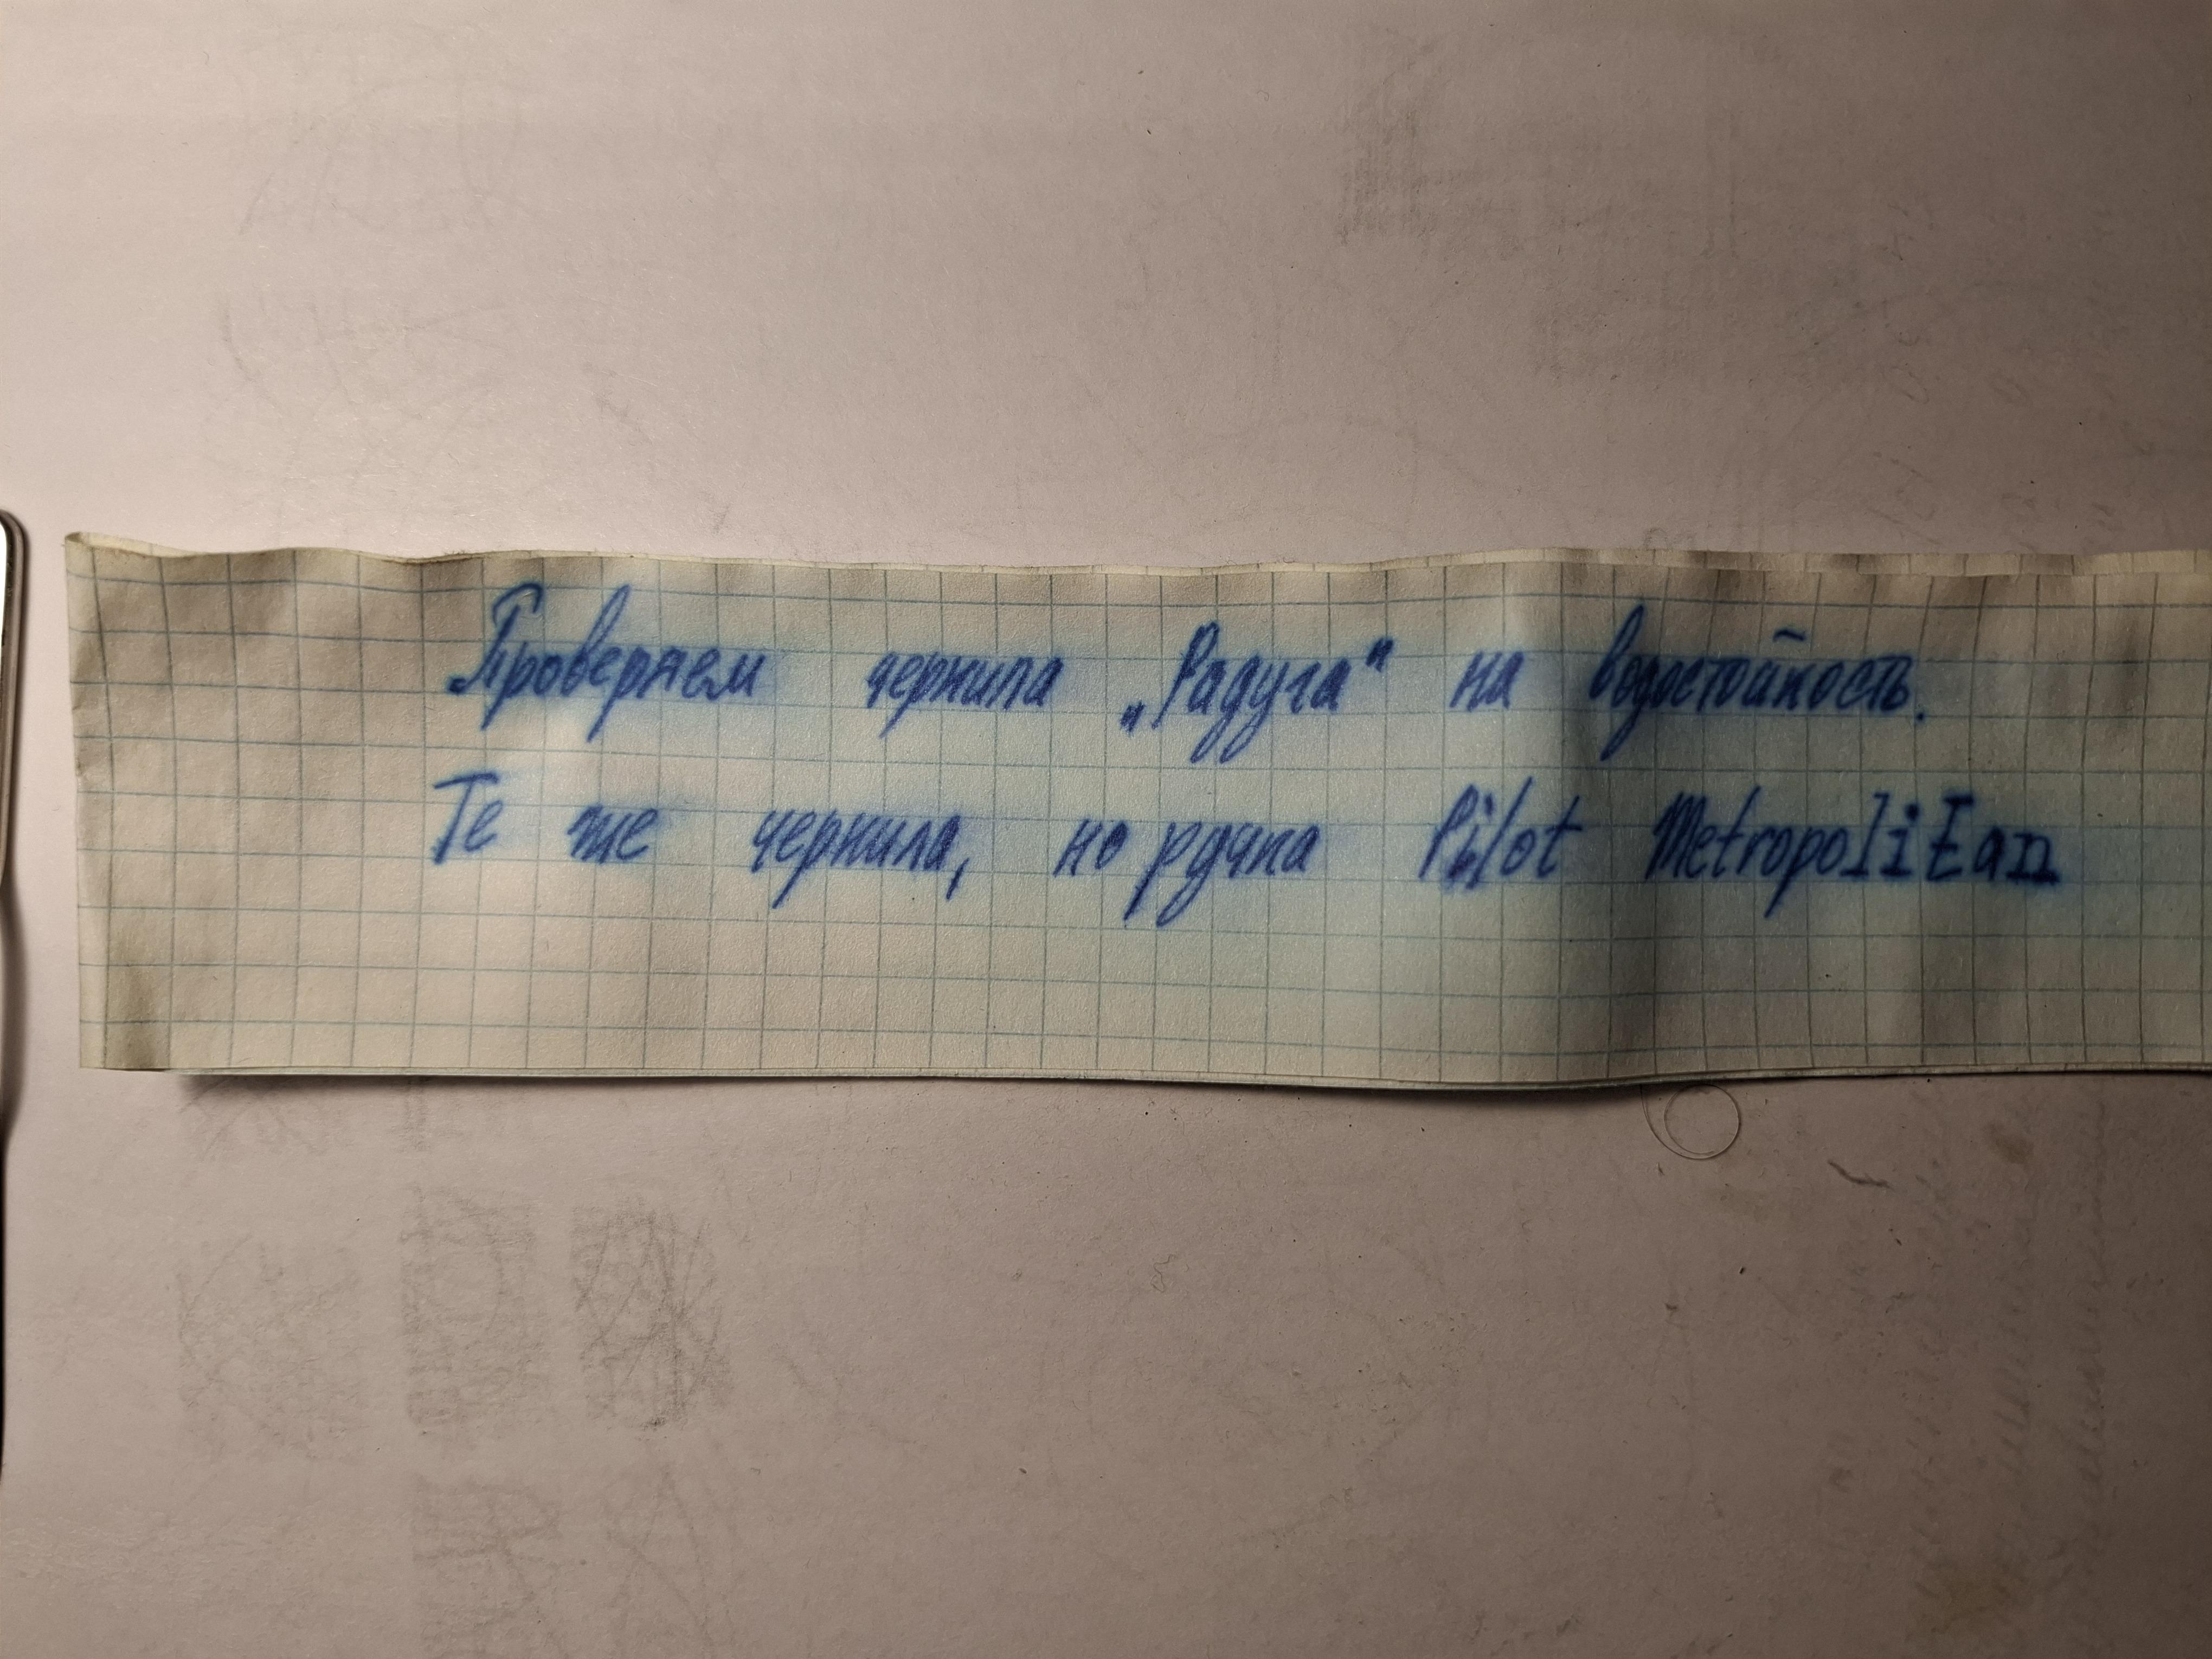 Проверяем чернила „Радуга“ на водостойкость.
Те же чернила, но ручка Pilot MetropoliEan